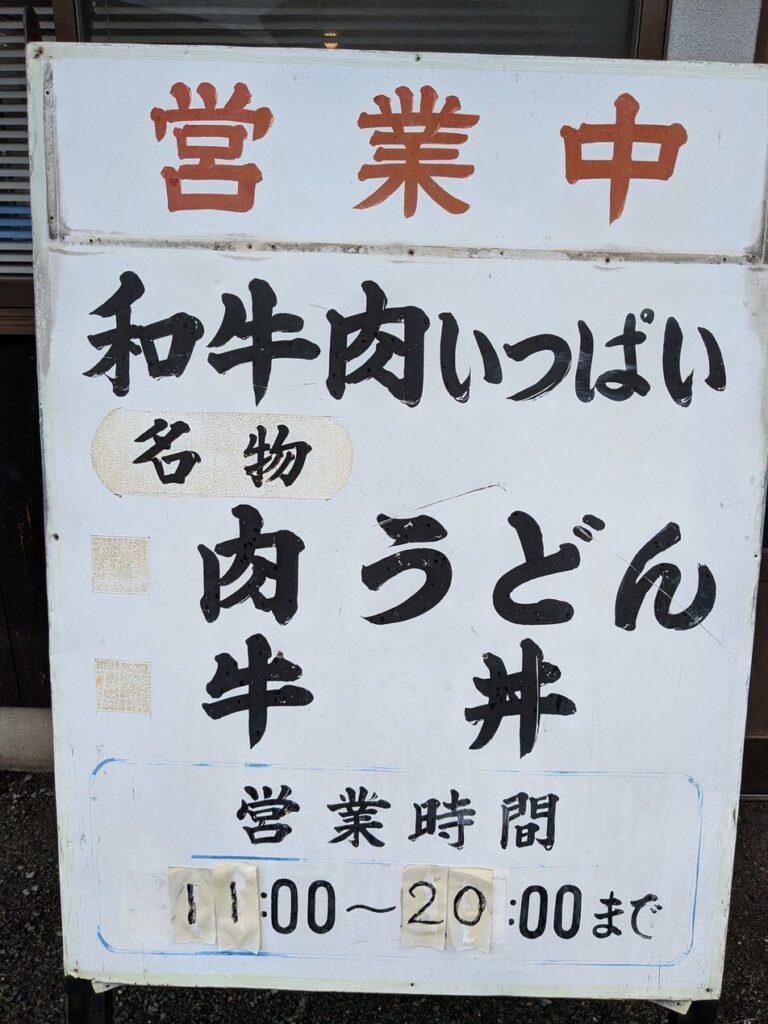 営業中
和牛肉いっぱい
名物
肉うどん
牛丼
営業時間
11:00～20:00まで